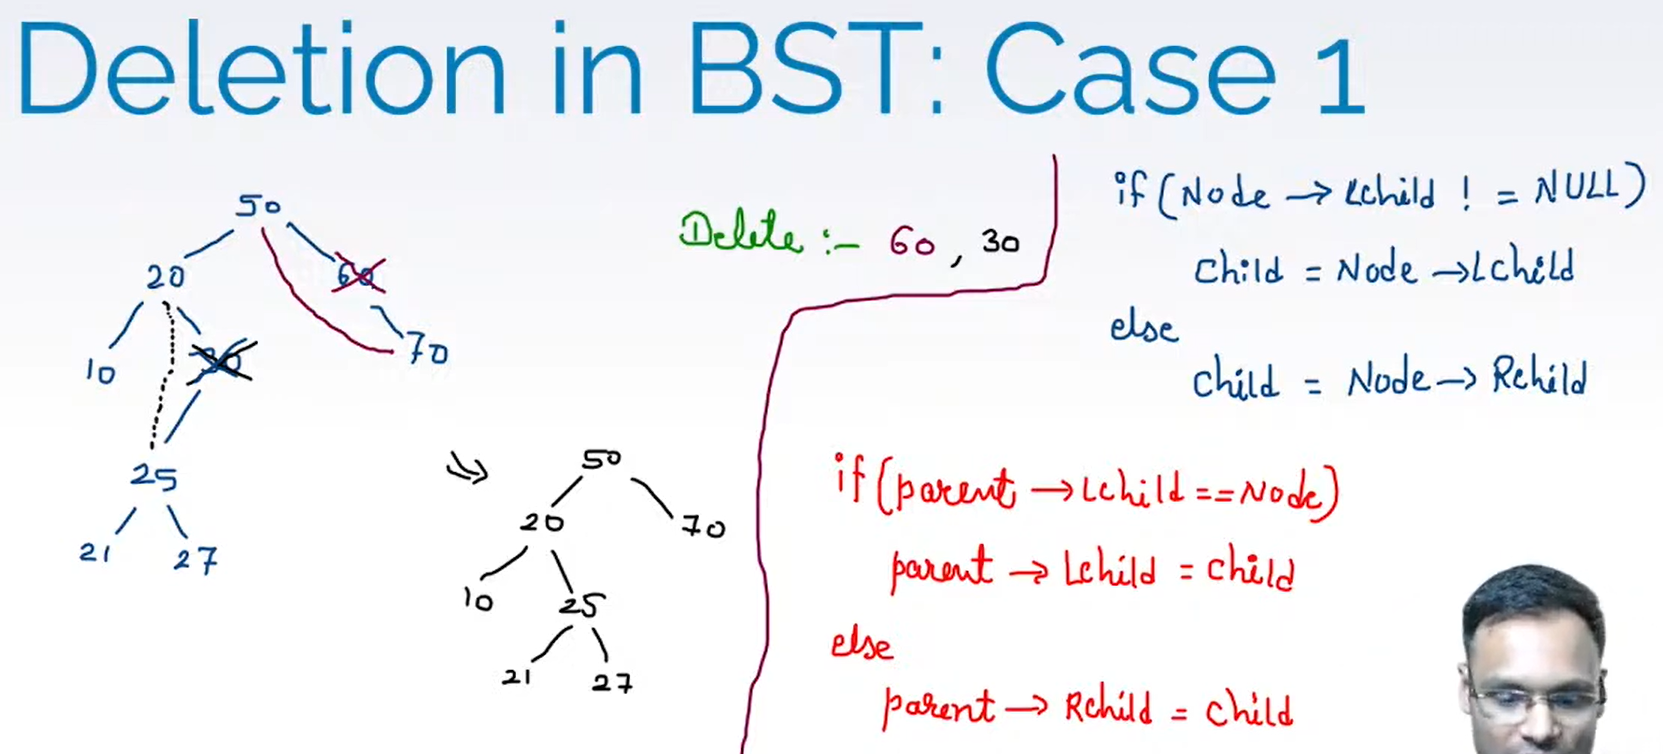 Deletion in BST: Case 1
50
20 60
10 30 70
25
21 27
Delete :- 60, 30
50
20 70
10 25
21 27
if (Node → Lchild != NULL)
child = Node → Lchild
else
child = Node → Rchild
if (parent → Lchild == Node)
parent → Lchild = child
else
parent → Rchild = child